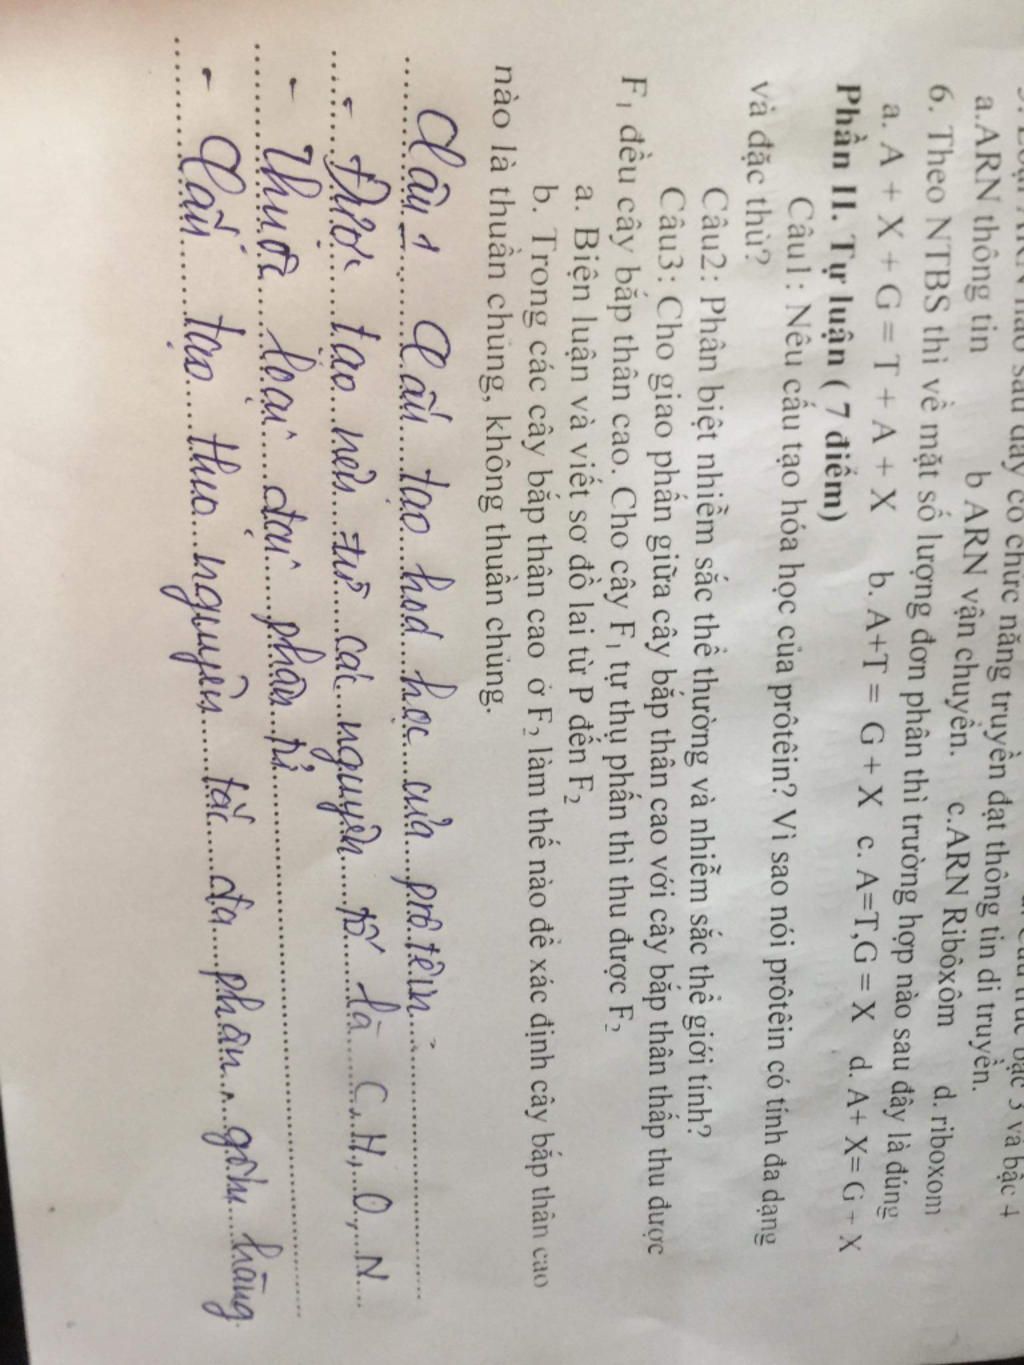 sau đây có chức năng truyền đạt thông tin di truyền.
a.ARN thông tin b ARN vận chuyển. c.ARN Ribôxôm d. riboxom
6. Theo NTBS thì về mặt số lượng đơn phân thì trường hợp nào sau đây là đúng
a. A + X + G = T + A + X b. A+T = G + X c. A=T,G = X d. A+ X= G + X
Phần II. Tự luận ( 7 điểm)
Câu1: Nêu cấu tạo hóa học của prôtêin? Vì sao nói prôtêin có tính đa dạng
và đặc thù?
Câu2: Phân biệt nhiễm sắc thể thường và nhiễm sắc thể giới tính?
Câu3: Cho giao phấn giữa cây bắp thân cao với cây bắp thân thấp thu được
F₁ đều cây bắp thân cao. Cho cây F₁ tự thụ phấn thì thu được F₂
a. Biện luận và viết sơ đồ lai từ P đến F₂
b. Trong các cây bắp thân cao ở F₂ làm thế nào để xác định cây bắp thân cao
nào là thuần chủng, không thuần chủng.
Câu 1 Cấu tạo hoá học của prôtêin
- Được tạo nên từ các nguyên tố là C, H, O, N
- Thuộc loại đại phân tử
- Cấu tạo theo nguyên tắc đa phân, gồm hàng